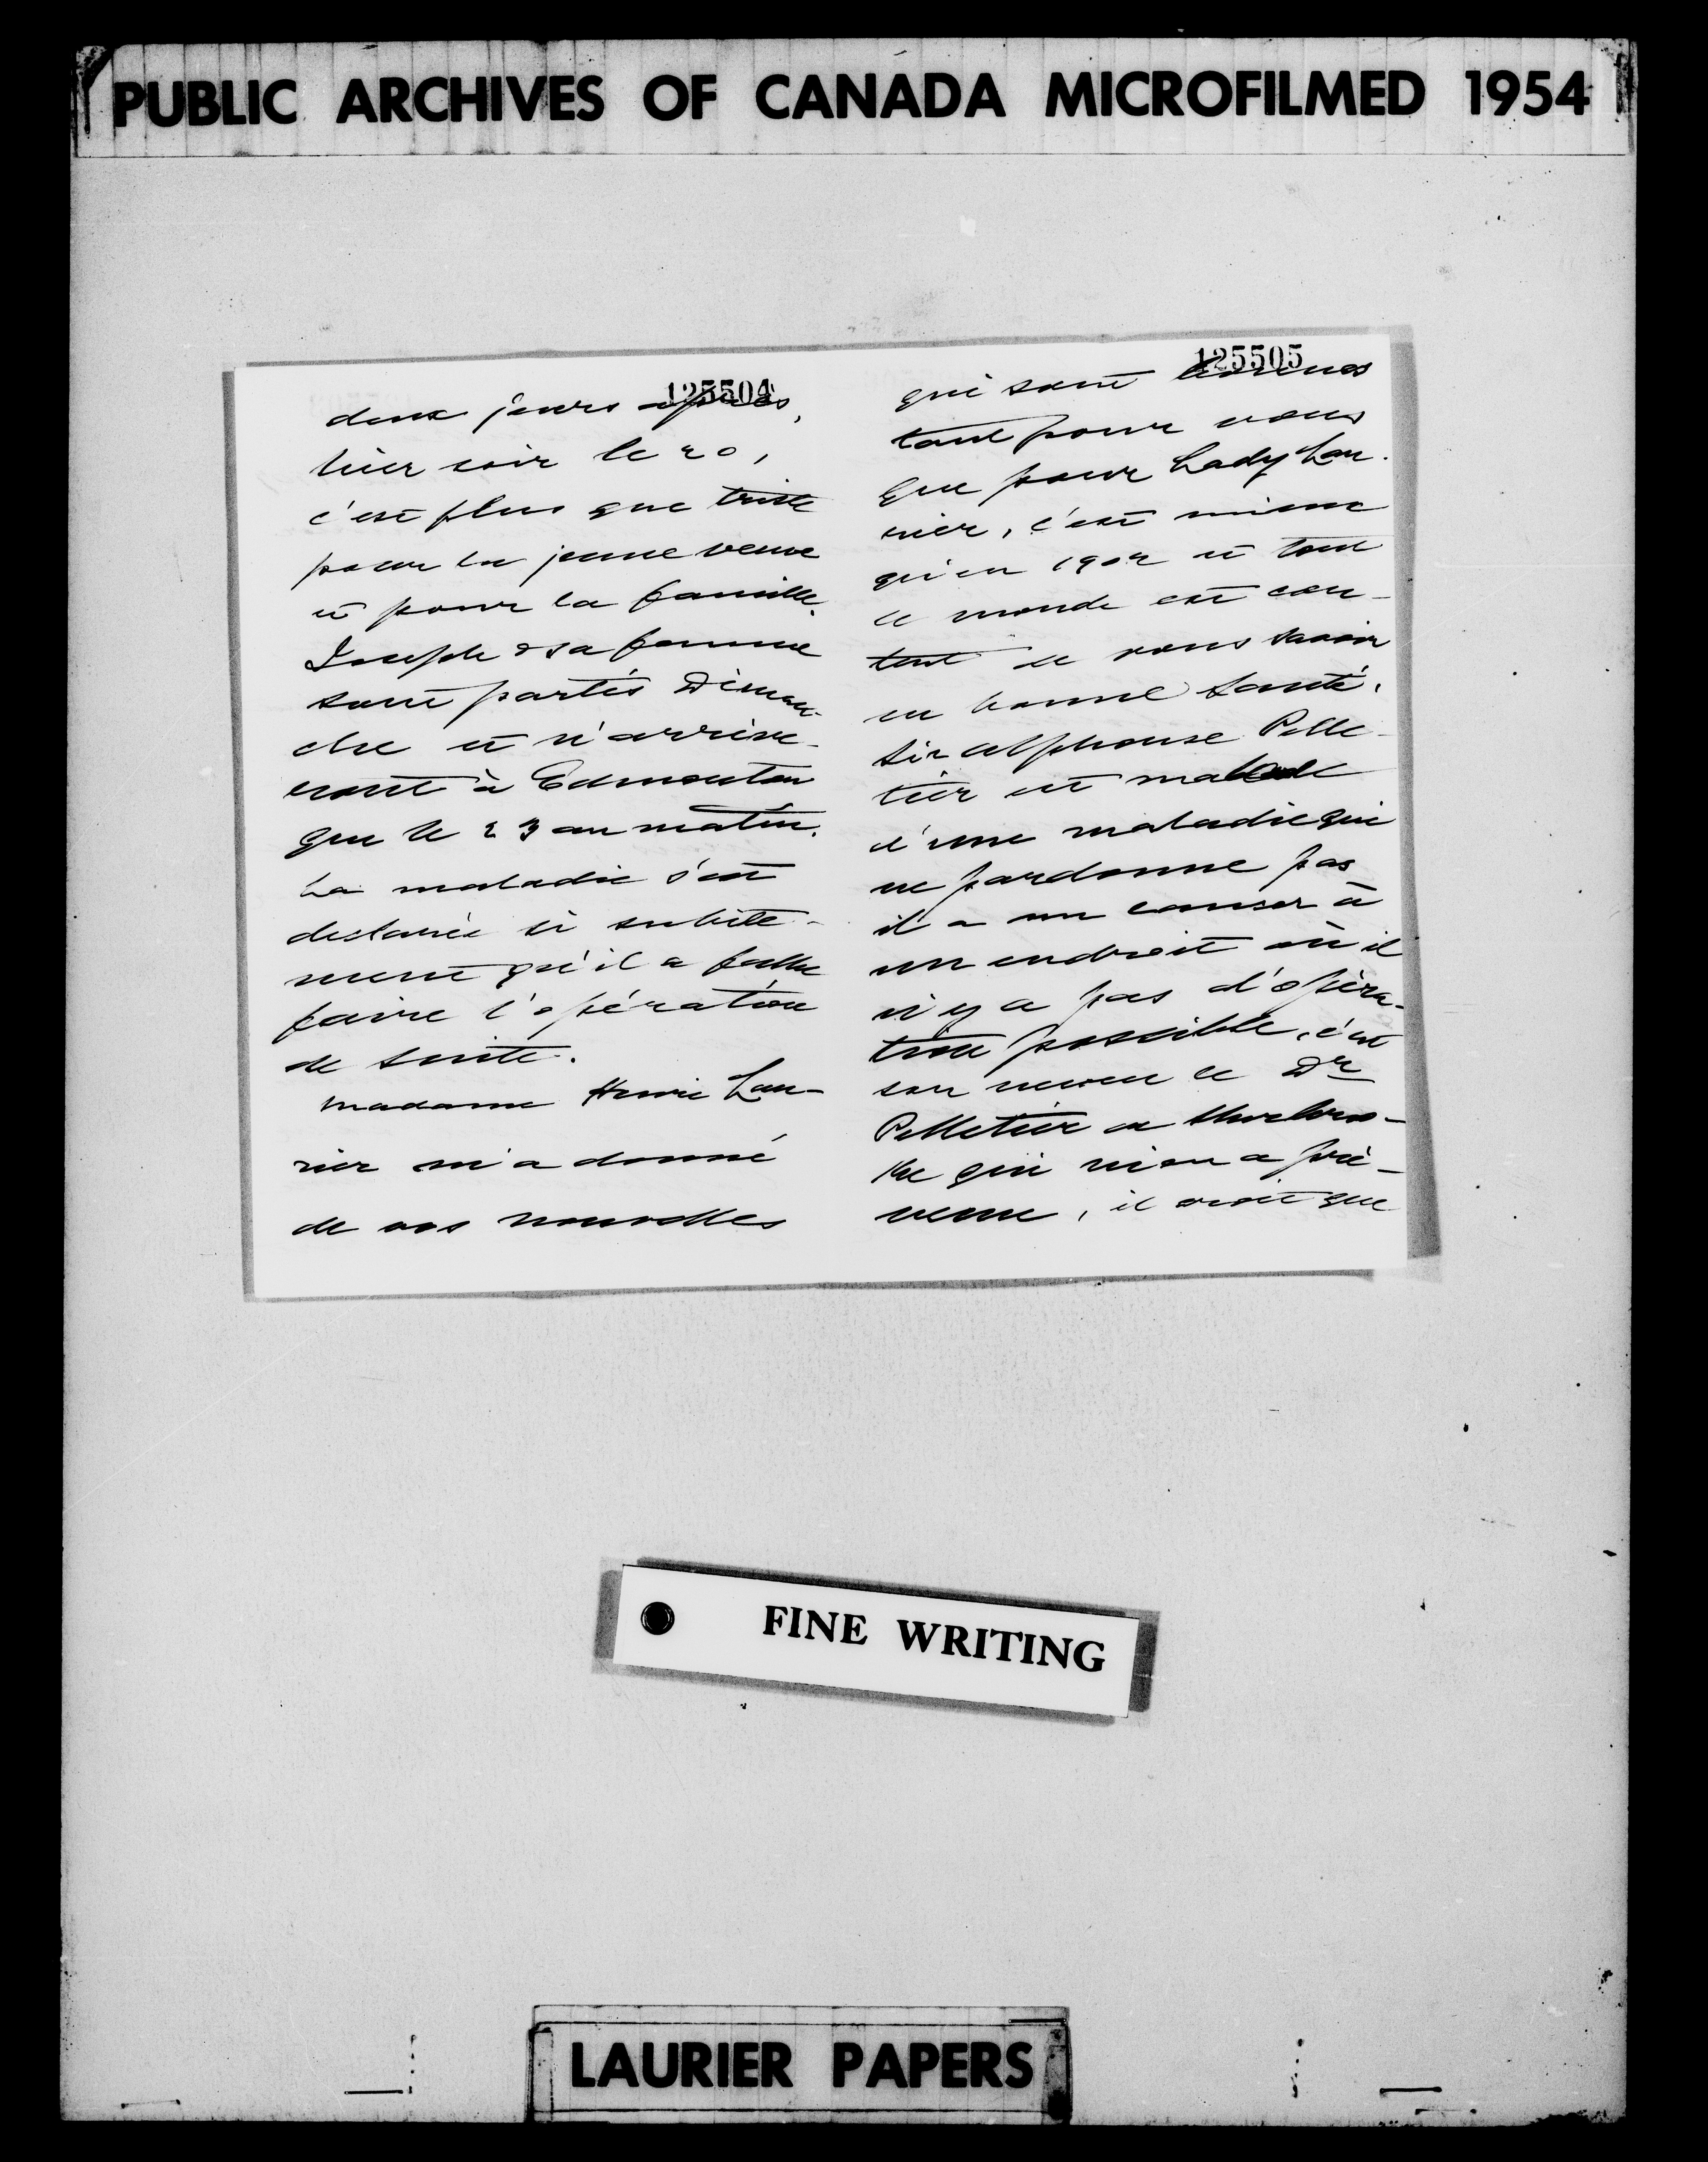 PUBLIC ARCHIVES OF CANADA MICROFILMED 1954
125504
deux jours après,
hier soir le 20,
c'est plus que triste
pour la jeune veuve
et pour la famille.
Joseph & sa femme
sont partis Diman-
che et n'arrive-
ront à Edmonton
que le 23 au matin.
La maladie s'est
déclarée si subite-
ment qu'il a fallu
faire l'opération
de suite.
Madame Henri Lau-
rier m'a donné
de vos nouvelles
125505
qui sont bonnes
tant pour vous
que pour Lady Lau-
rier, c'est mieux
qu'en 1902 et tout
le monde est con-
tent de vous savoir
en bonne santé.
Sir Alphonse Pelle-
tier est malade
d'une maladie qui
ne pardonne pas
il a un cancer à
un endroit où il
n'y a pas d'opéra-
tion possible, c'est
son neveu le Dr
Pelletier de Sherbroo-
ke qui m'en a pré-
venu, il croit que
FINE WRITING
LAURIER PAPERS